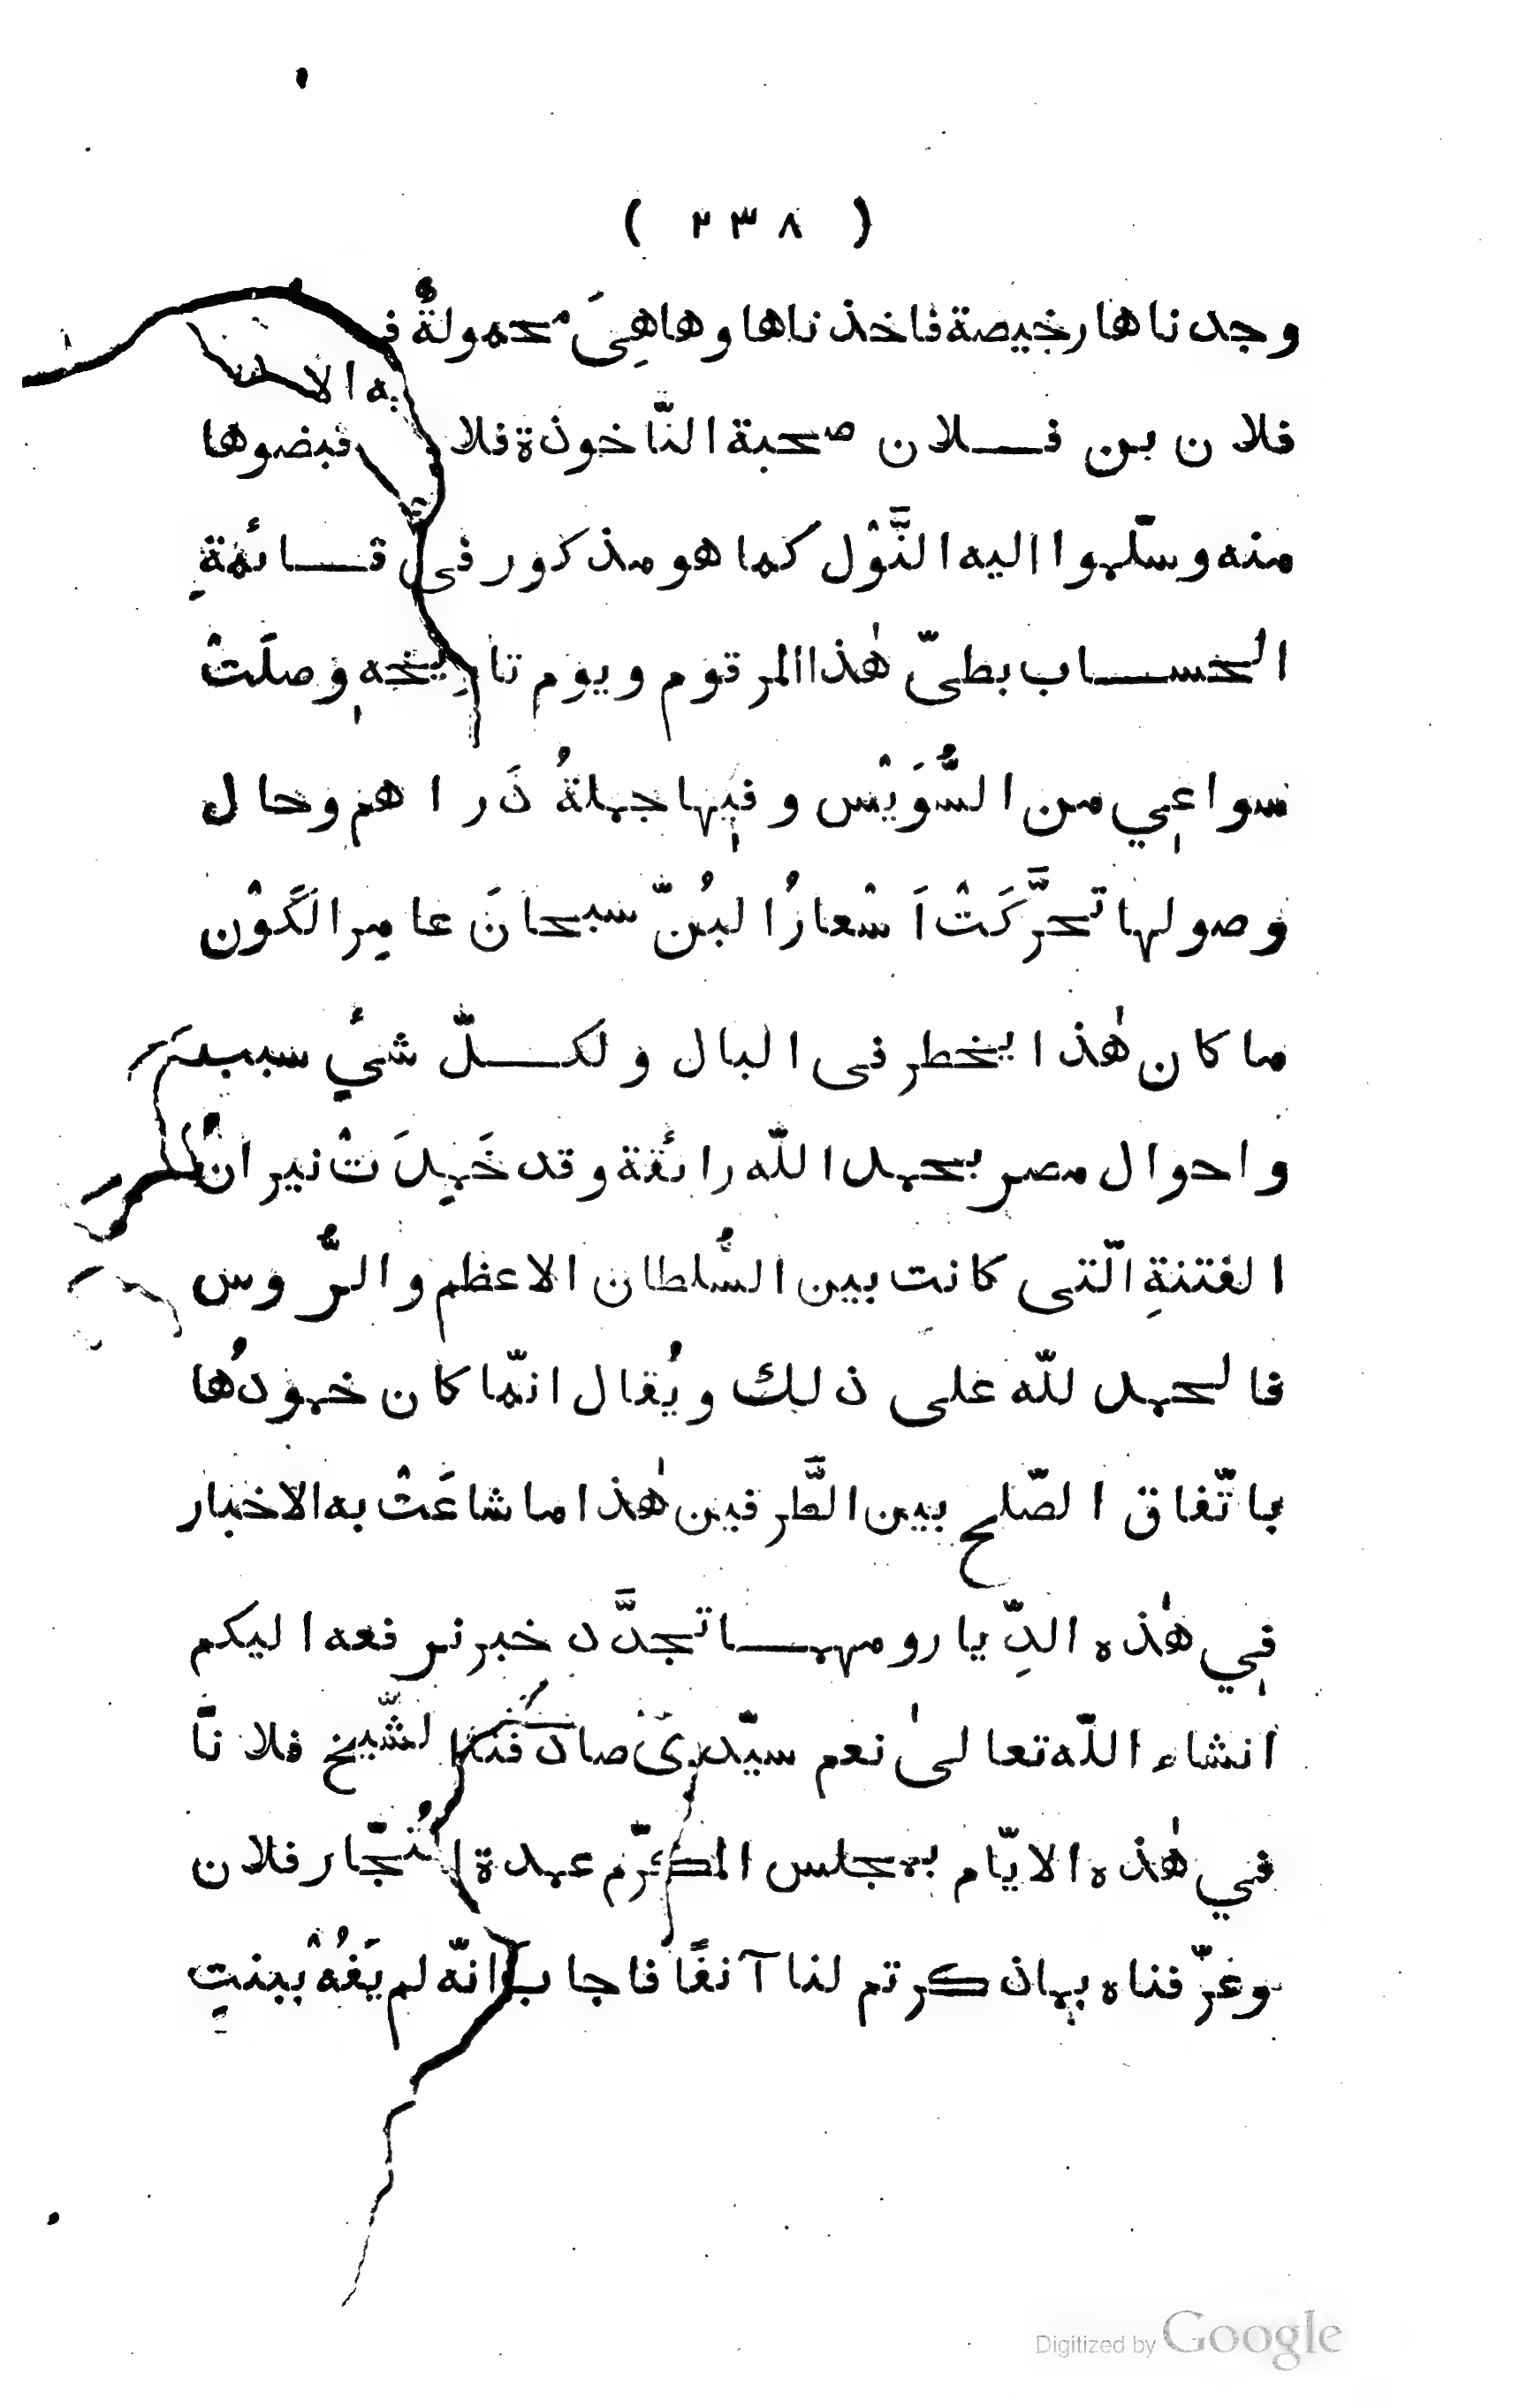 ( ٢٣٨ )
وجدناها رخيصة فاخذناها وها هِىَ محمولةٌ
فلان بن فــلان صحبة النّاخوذة فاقبضوها
منه وسلّموا اليه النَّوْل كما هو مذكور فى قــائمةِ
الحســاب بطىّ هٰذا المرقوم ويوم تاريخهٖ وصلَتْ
سواعىٖ من السُّوَيْس وفيٖها جملةُ دَراهم وحال
وصولها تحرَّكَتْ اَسْعارُ البُنّ سبحانَ عامِر الكَوْن
ما كان هٰذا يخطر فى البال ولكــلّ شئٍ سبب
واحوال مصر بحمد اللّه رائقة وقد خَمِدَتْ نيرانُ
الفتنةِ الّتى كانت بين السُّلطان الاعظم والرُّوس
فالحمد للّه على ذلك ويُقال انّما كان خمودُها
باتّفاق الصّلح بين الطَّرفين هٰذا ما شاعَتْ به الاخبار
فىٖ هٰذه الدِّيار ومهمــا تجدَّد خبر نرفعه اليكم
انشاء اللّه تعالىٰ نعم سيّدىْ صادَفْنَا الشّيخ فلانًا
في هٰذه الايّام بمجلس المكرّم عمدة التُّجّار فلان
وعرّفناه بما ذكرتم لنا آنفًا فاجاب انّه لم يَفُهْ ببنتِ
Digitized by Google